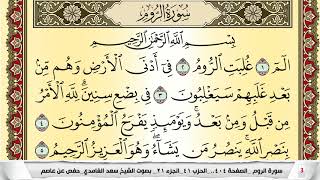 سورة الروم
بِسْمِ اللَّهِ الرَّحْمَٰنِ الرَّحِيمِ
الٓمٓ ١ غُلِبَتِ الرُّومُ ٢ فِي أَدْنَى الْأَرْضِ وَهُم مِّن
بَعْدِ غَلَبِهِمْ سَيَغْلِبُونَ ٣ فِي بِضْعِ سِنِينَ ۗ لِلَّهِ الْأَمْرُ
مِن قَبْلُ وَمِن بَعْدُ ۚ وَيَوْمَئِذٍ يَفْرَحُ الْمُؤْمِنُونَ ٤
بِنَصْرِ اللَّهِ ۚ يَنصُرُ مَن يَشَاءُ ۖ وَهُوَ الْعَزِيزُ الرَّحِيمُ ٥
سورة الروم _ الصفحة ٤٠٤ _ الحزب ٤١ _ الجزء ٢١ _ بصوت الشيخ سعد الغامدي _ حفص عن عاصم
3